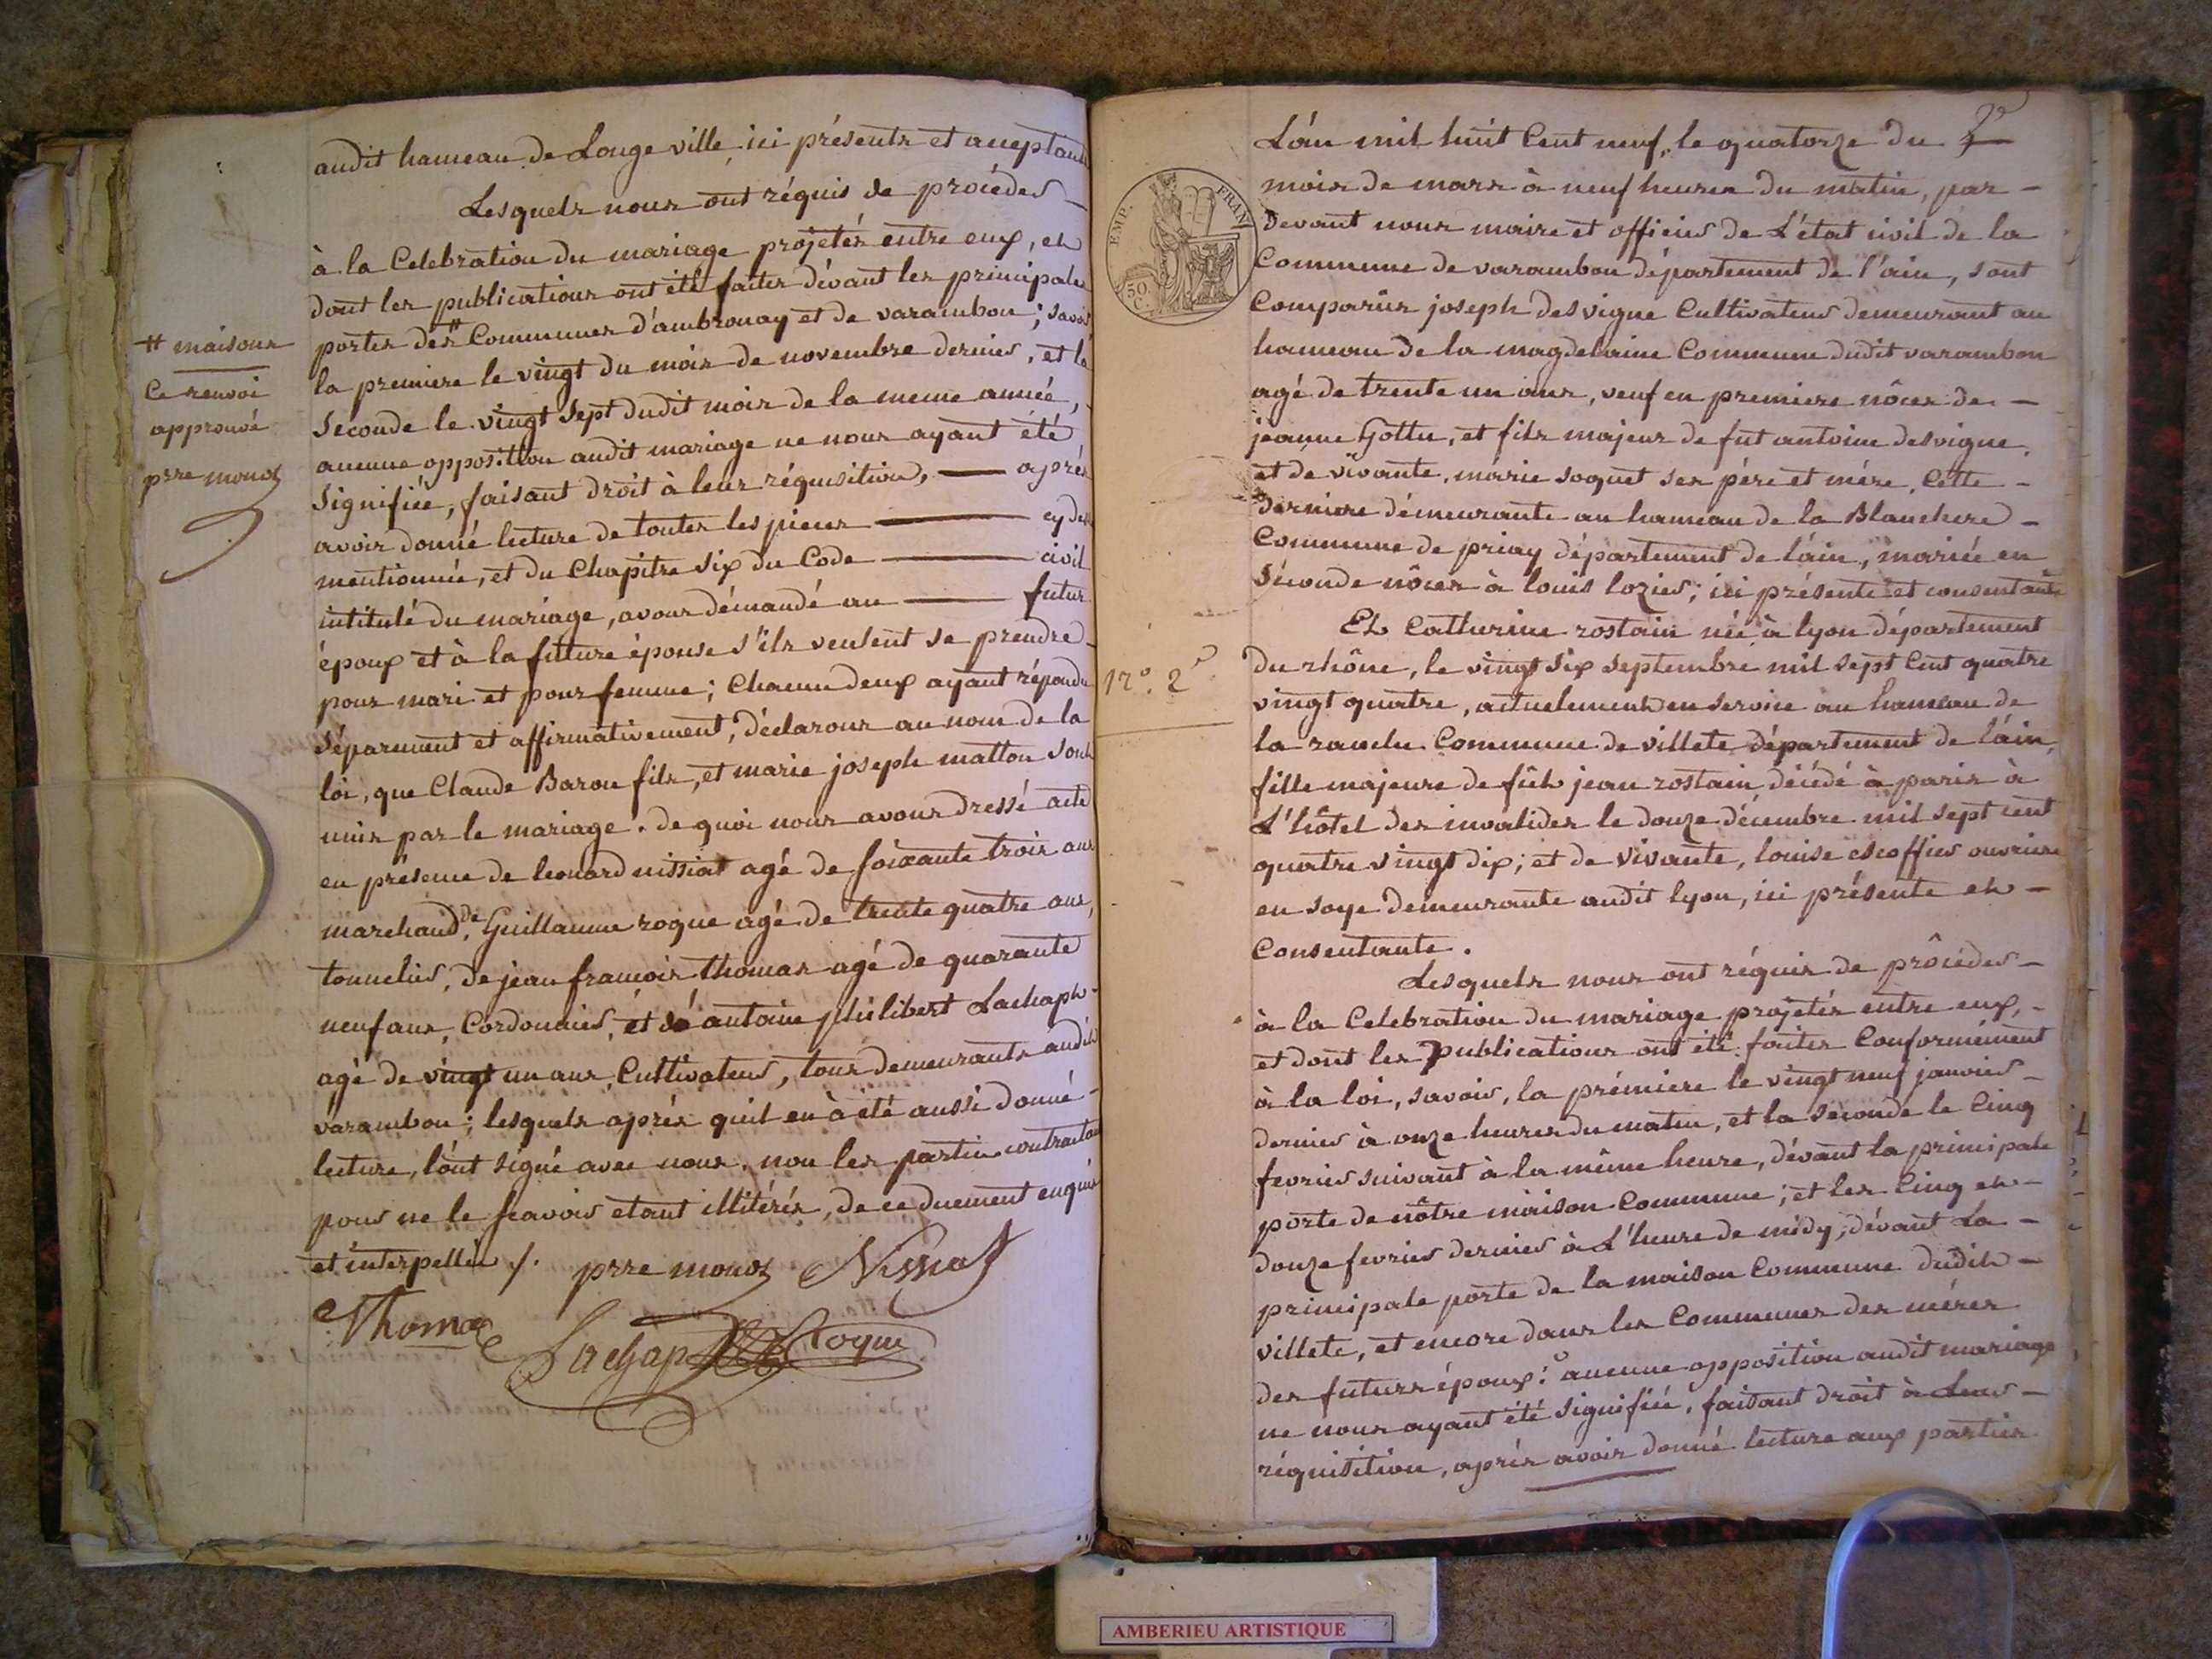 audit hameau de Longeville, ici présents et aceptants
Lesquels nous ont réquis de procéder
à la Celebration du mariage projetés entre eux, et
dont les publications ont été faites dévant les principales
portes des # Communes d'ambronay et de varambon; savoir
la premiere le vingt du mois de novembre dernier, et la
Seconde le vingt Sept dudit mois de la meme année,
aucune opposition audit mariage ne nous ayant été
Signifiée, faisant droit à leur réquisition, après
avoir donné lecture de toutes les pieces cy des
mentionnée, et du Chapitre six du Code civil
intitulé du mariage, avons démandé au futur
époux et à la future épouse s'ils veulent se prendre
pour mari et pour femme; Chacun deux ayant répondu
Séparement et affirmativement, déclarons au nom de la
loi, que Claude Baron fils, et marie joseph matton sont
unis par le mariage. de quoi nous avons dressé acte
en présence de leonard nissiat agé de soixante trois ans
marchand, de Guillaume roque agé de trente quatre ans,
tonnelier, de jean francois thomas agé de quarante
neuf ans, Cordonnier, et de antoine philibert Lachap
agé de vingt un ans, Cultivateur, tous demeurants audit
varambon; lesquels après quil en à été aussi donné
lecture, lont signé avec nous, non les parties contractan
pour ne le scavoir etant illitérés, de ce duement enquis
et interpellée /. prre monoz Nissiat
Thomas Lachap Roque
# maisons
Ce renvoi
approuvé
prre monoz
2e
EMP. FRAN
50 C.
L'an mil huit Cent neuf, le quatorze du
mois de mars à neuf heures du matin, par -
devant nous maire et officier de L'état civil de la
Commune de varambon département de l'ain, sont
Comparûs joseph desvigne Cultivateur demeurant au
hameau de la magdelaine Commune dudit varambon
agé de trente un ans, veuf en premiere nôces de -
jeanne Gottu, et fils majeur de fut antoine desvigne
et de vivante, marie soquet ses pére et mére, Cette -
derniere démeurante au hameau de la Blanchere -
Commune de priay département de l'ain, mariée en
Séconde nôces à louis lozier; ici présente et consentante
Et Catherine rostain née à lyon département
du rhône, le vingt six septembre mil sept Cent quatre
vingt quatre, actuelement en service au hameau de
la ranche Commune de villete département de l'ain,
fille majeure de fût jean rostain, décédé à paris à
L'hôtel des invalides le douze décembre mil sept cent
quatre vingt dix; et de vivante, louise escoffier ouvriere
en soye demeurante audit lyon, ici présente et -
Consentante.
Lesquels nous ont réquis de prôcéder -
à la Celebration du mariage projetés entre eux, -
et dont les publications ont été faites Conformément
à la loi, savoir, la prémiere le vingt neuf janvier -
dernier à onze heures du matin, et la seconde le Cinq
fevrier suivant à la même heure, dévant la principale
porte de nôtre maison Commune; et les Cinq et -
douze fevrier dernier à L'heure de midy, dévant La -
principale porte de la maison Commune dudit -
villete, et encore dans les Communes des méres
des futurs époux: aucune opposition audit mariage
ne nous ayant été signifiée, faisant droit à Leur -
réquisition, après avoir donné lecture aux parties
No. 2e
AMBERIEU ARTISTIQUE